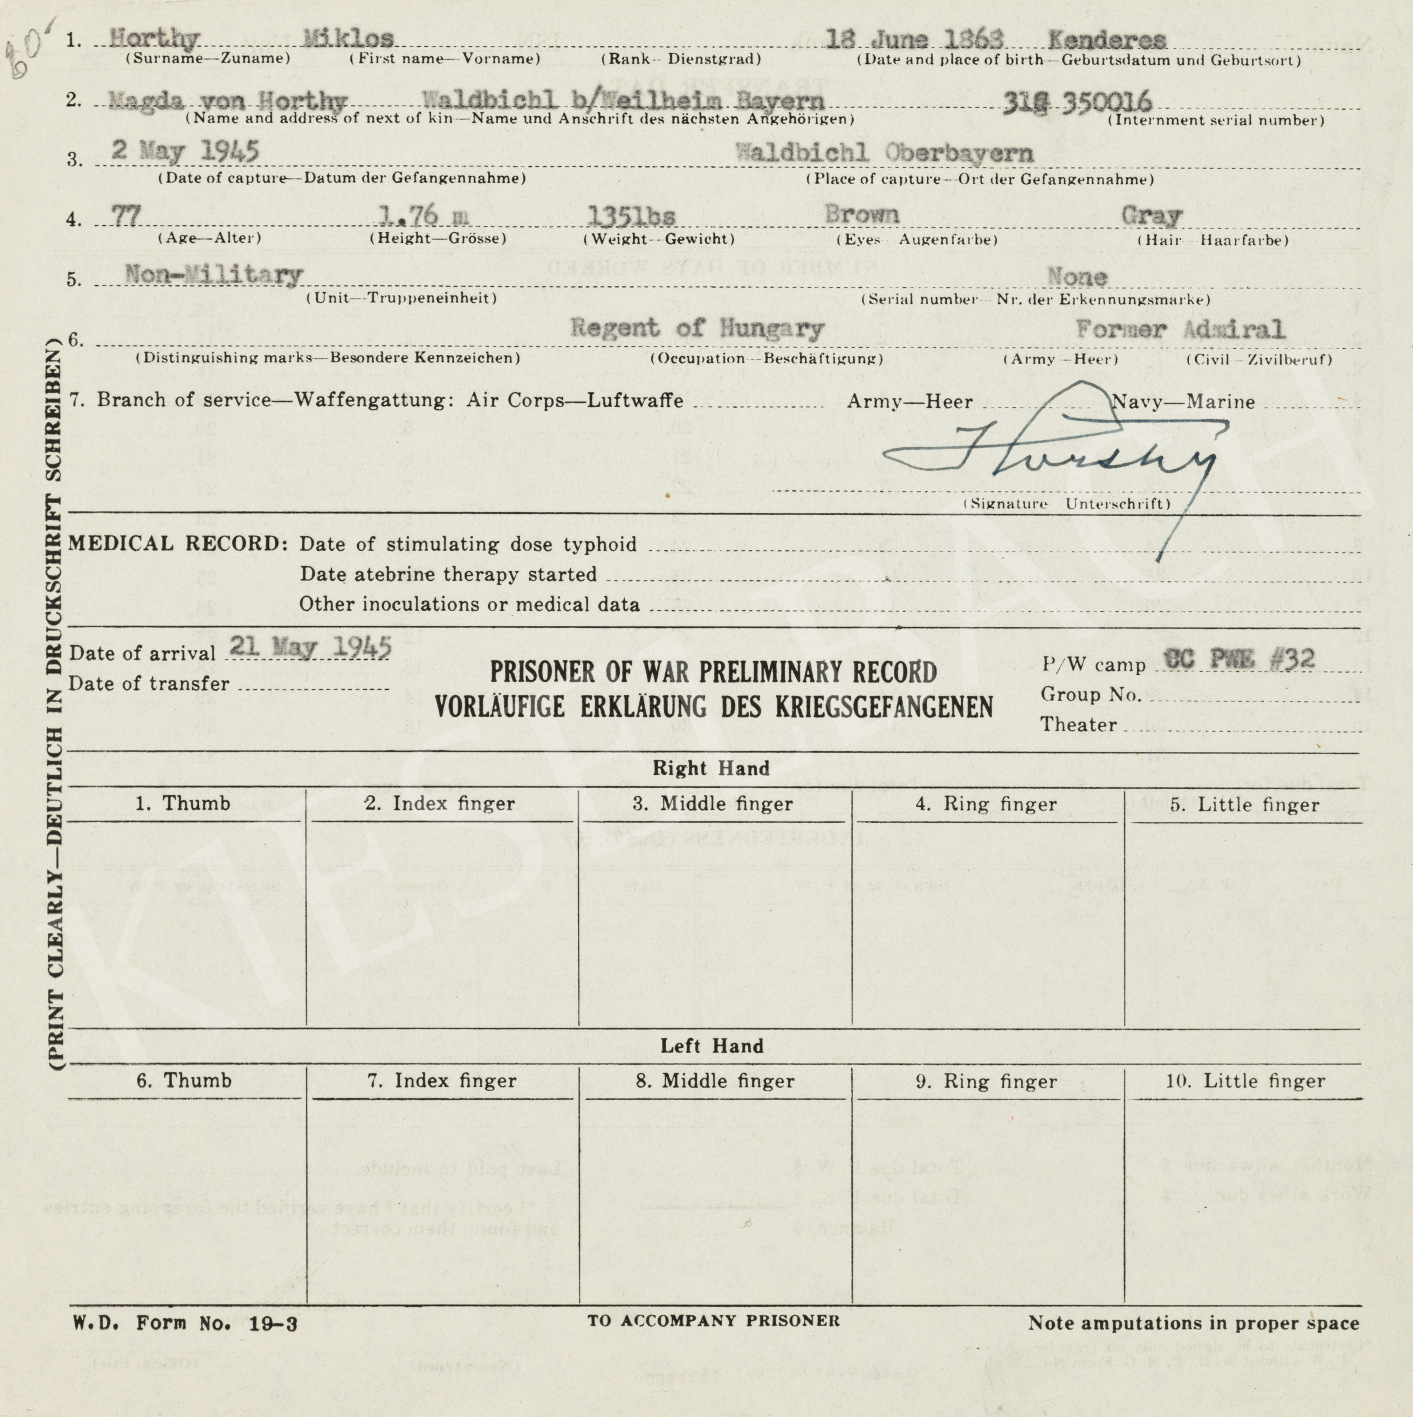 80'
1. Horthy Miklos 18 June 1868 Kenderes
(Surname—Zuname) (First name—Vorname) (Rank—Dienstgrad) (Date and place of birth—Geburtsdatum und Geburtsort)
2. Magda von Horthy Waldbichl b/Weilheim Bayern 31g 350016
(Name and address of next of kin—Name und Anschrift des nächsten Angehörigen) (Internment serial number)
3. 2 May 1945 Waldbichl Oberbayern
(Date of capture—Datum der Gefangennahme) (Place of capture—Ort der Gefangennahme)
4. 77 1.76 m 135lbs Brown Gray
(Age—Alter) (Height—Grösse) (Weight—Gewicht) (Eyes Augenfarbe) (Hair Haarfarbe)
5. Non-Military None
(Unit—Truppeneinheit) (Serial number—Nr. der Erkennungsmarke)
6. Regent of Hungary Former Admiral
(Distinguishing marks—Besondere Kennzeichen) (Occupation—Beschäftigung) (Army—Heer) (Civil—Zivilberuf)
7. Branch of service—Waffengattung: Air Corps—Luftwaffe Army—Heer Navy—Marine
Horthy
(Signature Unterschrift)
MEDICAL RECORD: Date of stimulating dose typhoid
Date atebrine therapy started
Other inoculations or medical data
Date of arrival 21 May 1945
Date of transfer
PRISONER OF WAR PRELIMINARY RECORD
VORLÄUFIGE ERKLÄRUNG DES KRIEGSGEFANGENEN
P/W camp CC PWE #32
Group No.
Theater
(PRINT CLEARLY—DEUTLICH IN DRUCKSCHRIFT SCHREIBEN)
Right Hand
1. Thumb 2. Index finger 3. Middle finger 4. Ring finger 5. Little finger
Left Hand
6. Thumb 7. Index finger 8. Middle finger 9. Ring finger 10. Little finger
W.D. Form No. 19-3 TO ACCOMPANY PRISONER Note amputations in proper space
KIESELBACH